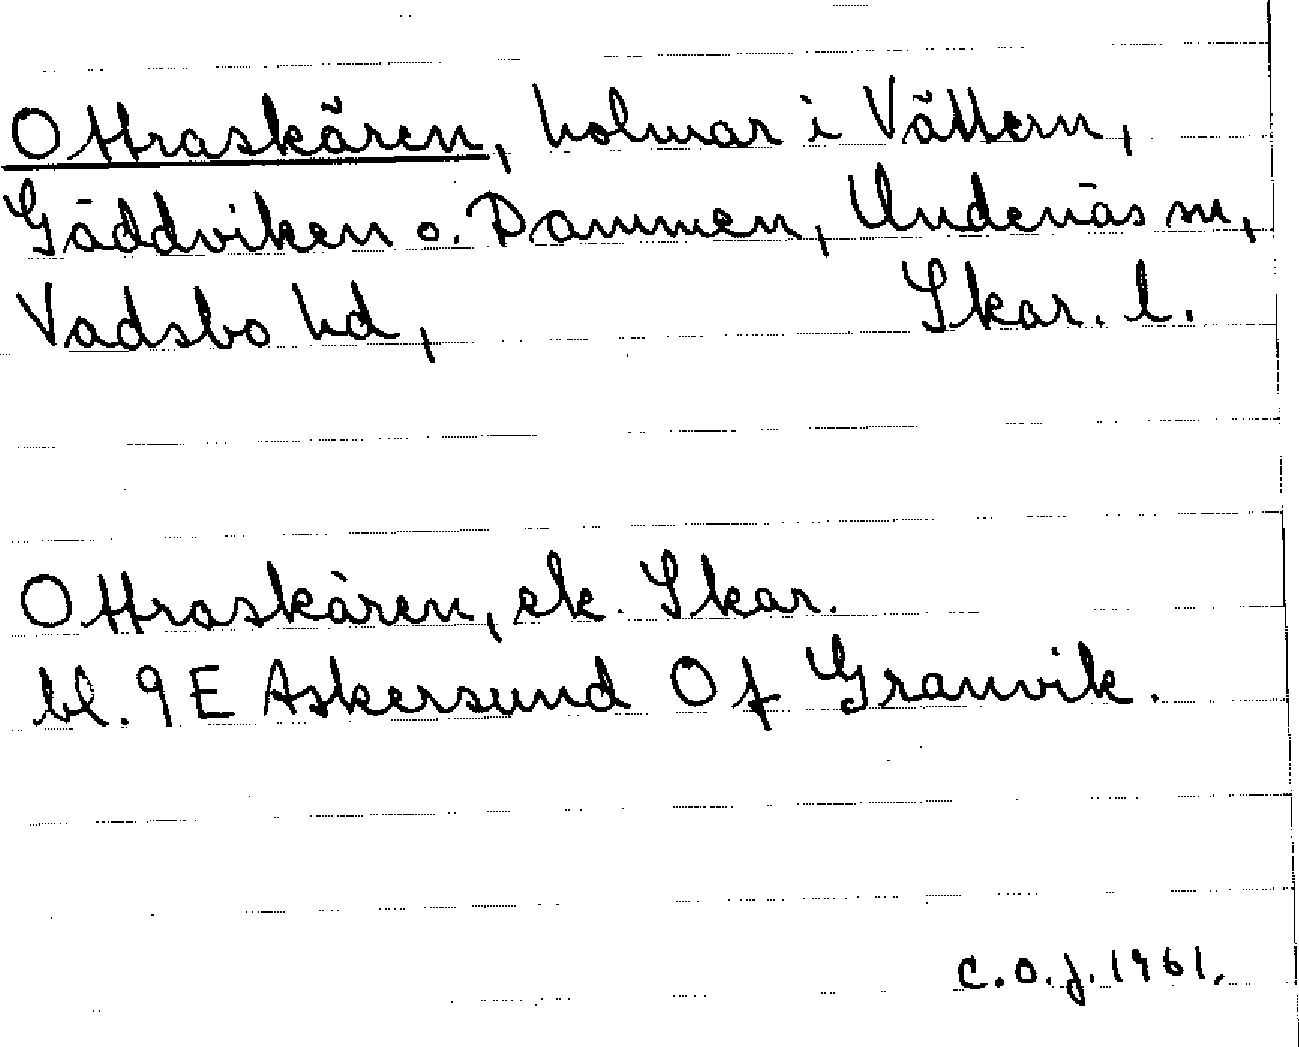 Ottraskären, holmar i Vättern,
Gäddviken o. Dammen, Undenäs sn,
Vadsbo hd, Skar. l.
Ottraskären, ek. Skar.
bl. 9 E Askersund O f Granvik.
C.O.J. 1961.